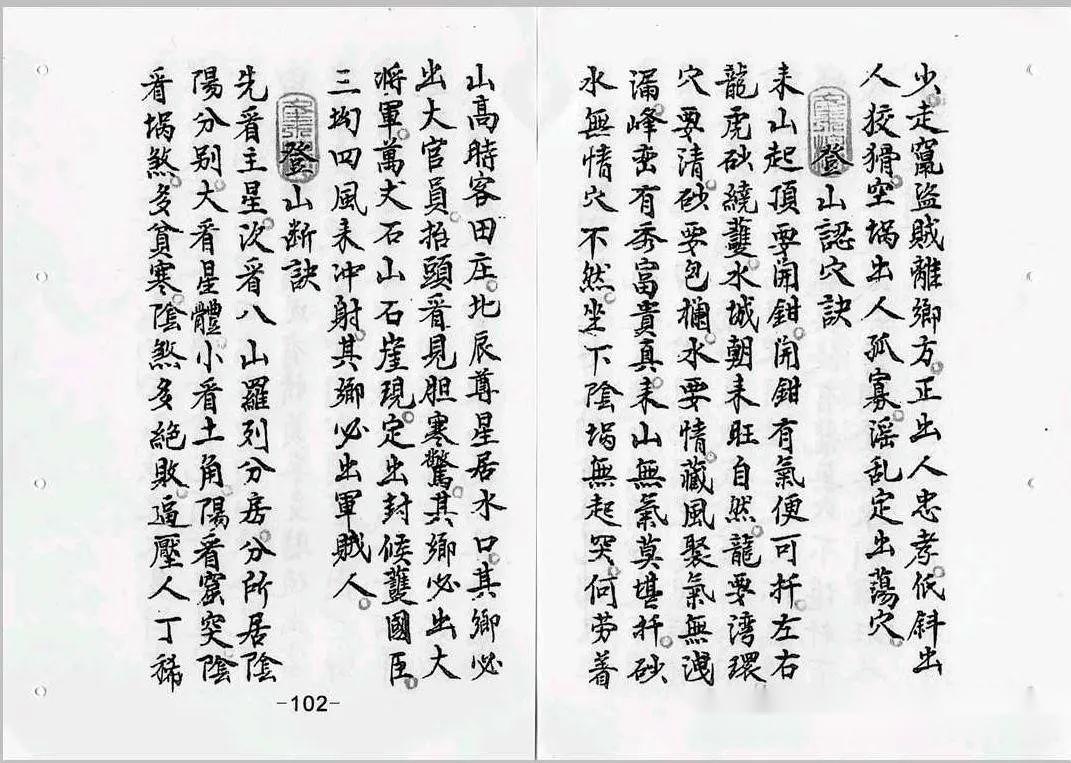 少走竄盜賊離鄉方正出人忠孝低斜出
人狡猾空堝出人孤寡淫乱定出蕩穴
登山認穴訣
来山起頂要開鉗開鉗有氣便可扦左右
龍虎砂繞護水城朝来旺自然龍要湾環
穴要清砂要包攔水要情藏風聚氣無洩
漏峰巒有秀富貴真来山無氣莫堪扦砂
水無情穴不然坐下陰堝無起突何劳着
山高時客田庄北辰尊星居水口其鄉必
出大官員抬頭看見胆寒驚其鄉必出大
將軍萬丈石山石崖現定出封候護國臣
三坳四風来冲射其鄉必出軍賊人
登山断訣
先看主星次看八山羅列分房分所居陰
陽分别大看星體小看土角陽看窩突陰
看堝煞多貧寒陰煞多絶敗逼壓人丁稀
-102-